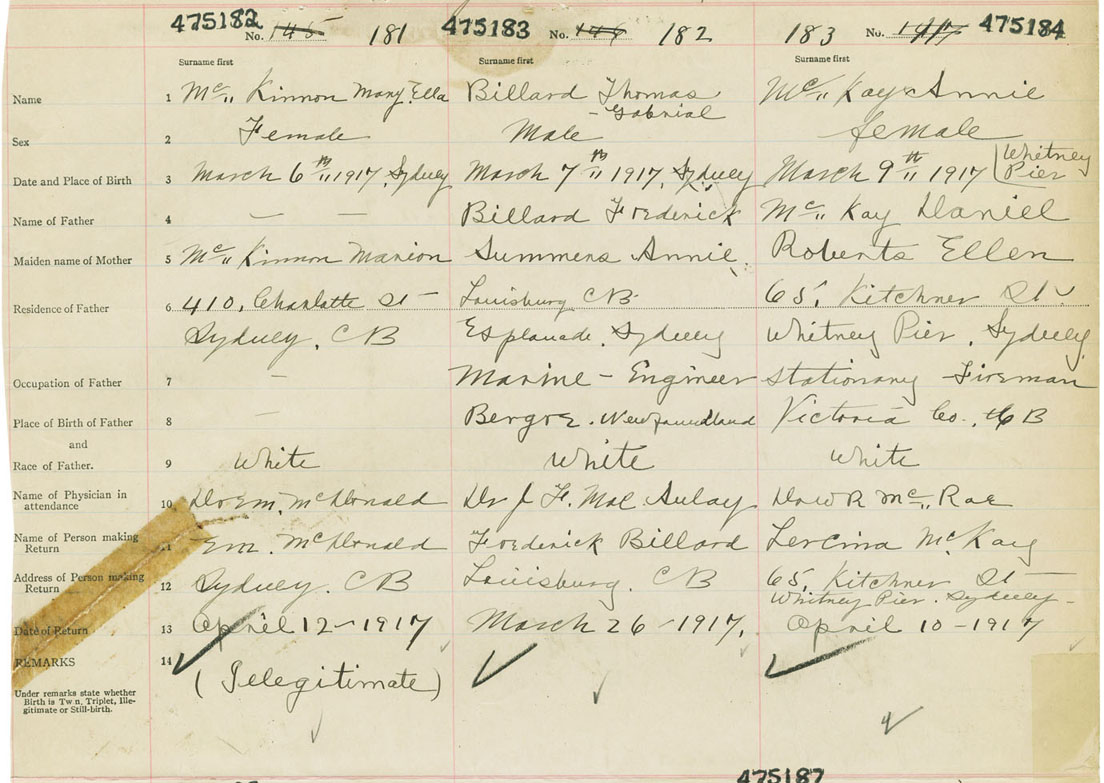 475182 No. 145 181 475183 No. 182 183 No. 475184
Surname first Surname first Surname first
Name 1 Mc„ Kinnon Mary Ella Billard Thomas Mc„ Kay Annie
- Gabrial
Sex 2 Female Male female
Date and Place of Birth 3 March 6th„ 1917, Sydney March 7th„ 1917, Sydney March 9th„ 1917 (Whitney Pier
Name of Father 4 — — Billard Frederick Mc„ Kay Daniel
Maiden name of Mother 5 Mc„ Kinnon Marion Summers Annie. Roberts Ellen
Residence of Father 6 410, Charlotte St – Louisburg CB 65, Kitchner St
Sydney, CB Esplanade, Sydney Whitney Pier, Sydney
Occupation of Father 7 - Marine - Engineer Stationary Fireman
Place of Birth of Father 8 — Newfoundland Victoria Co., CB
and
Race of Father. 9 White White White
Name of Physician in attendance 10 Dr Em. McDonald Dr J F. Mac Aulay Dr W R Mc„ Rae
Name of Person making Return 11 Em. McDonald Frederick Billard McKay
Address of Person making Return 12 Sydney. CB Louisburg. CB 65, Kitchner St —
Whitney Pier, Sydney -
Date of Return 13 April 12-1917 March 26-1917, April 10-1917
REMARKS 14
(Illegitimate)
Under remarks state whether
Birth is Twin, Triplet, Ille-
gitimate or Still-birth.
475187